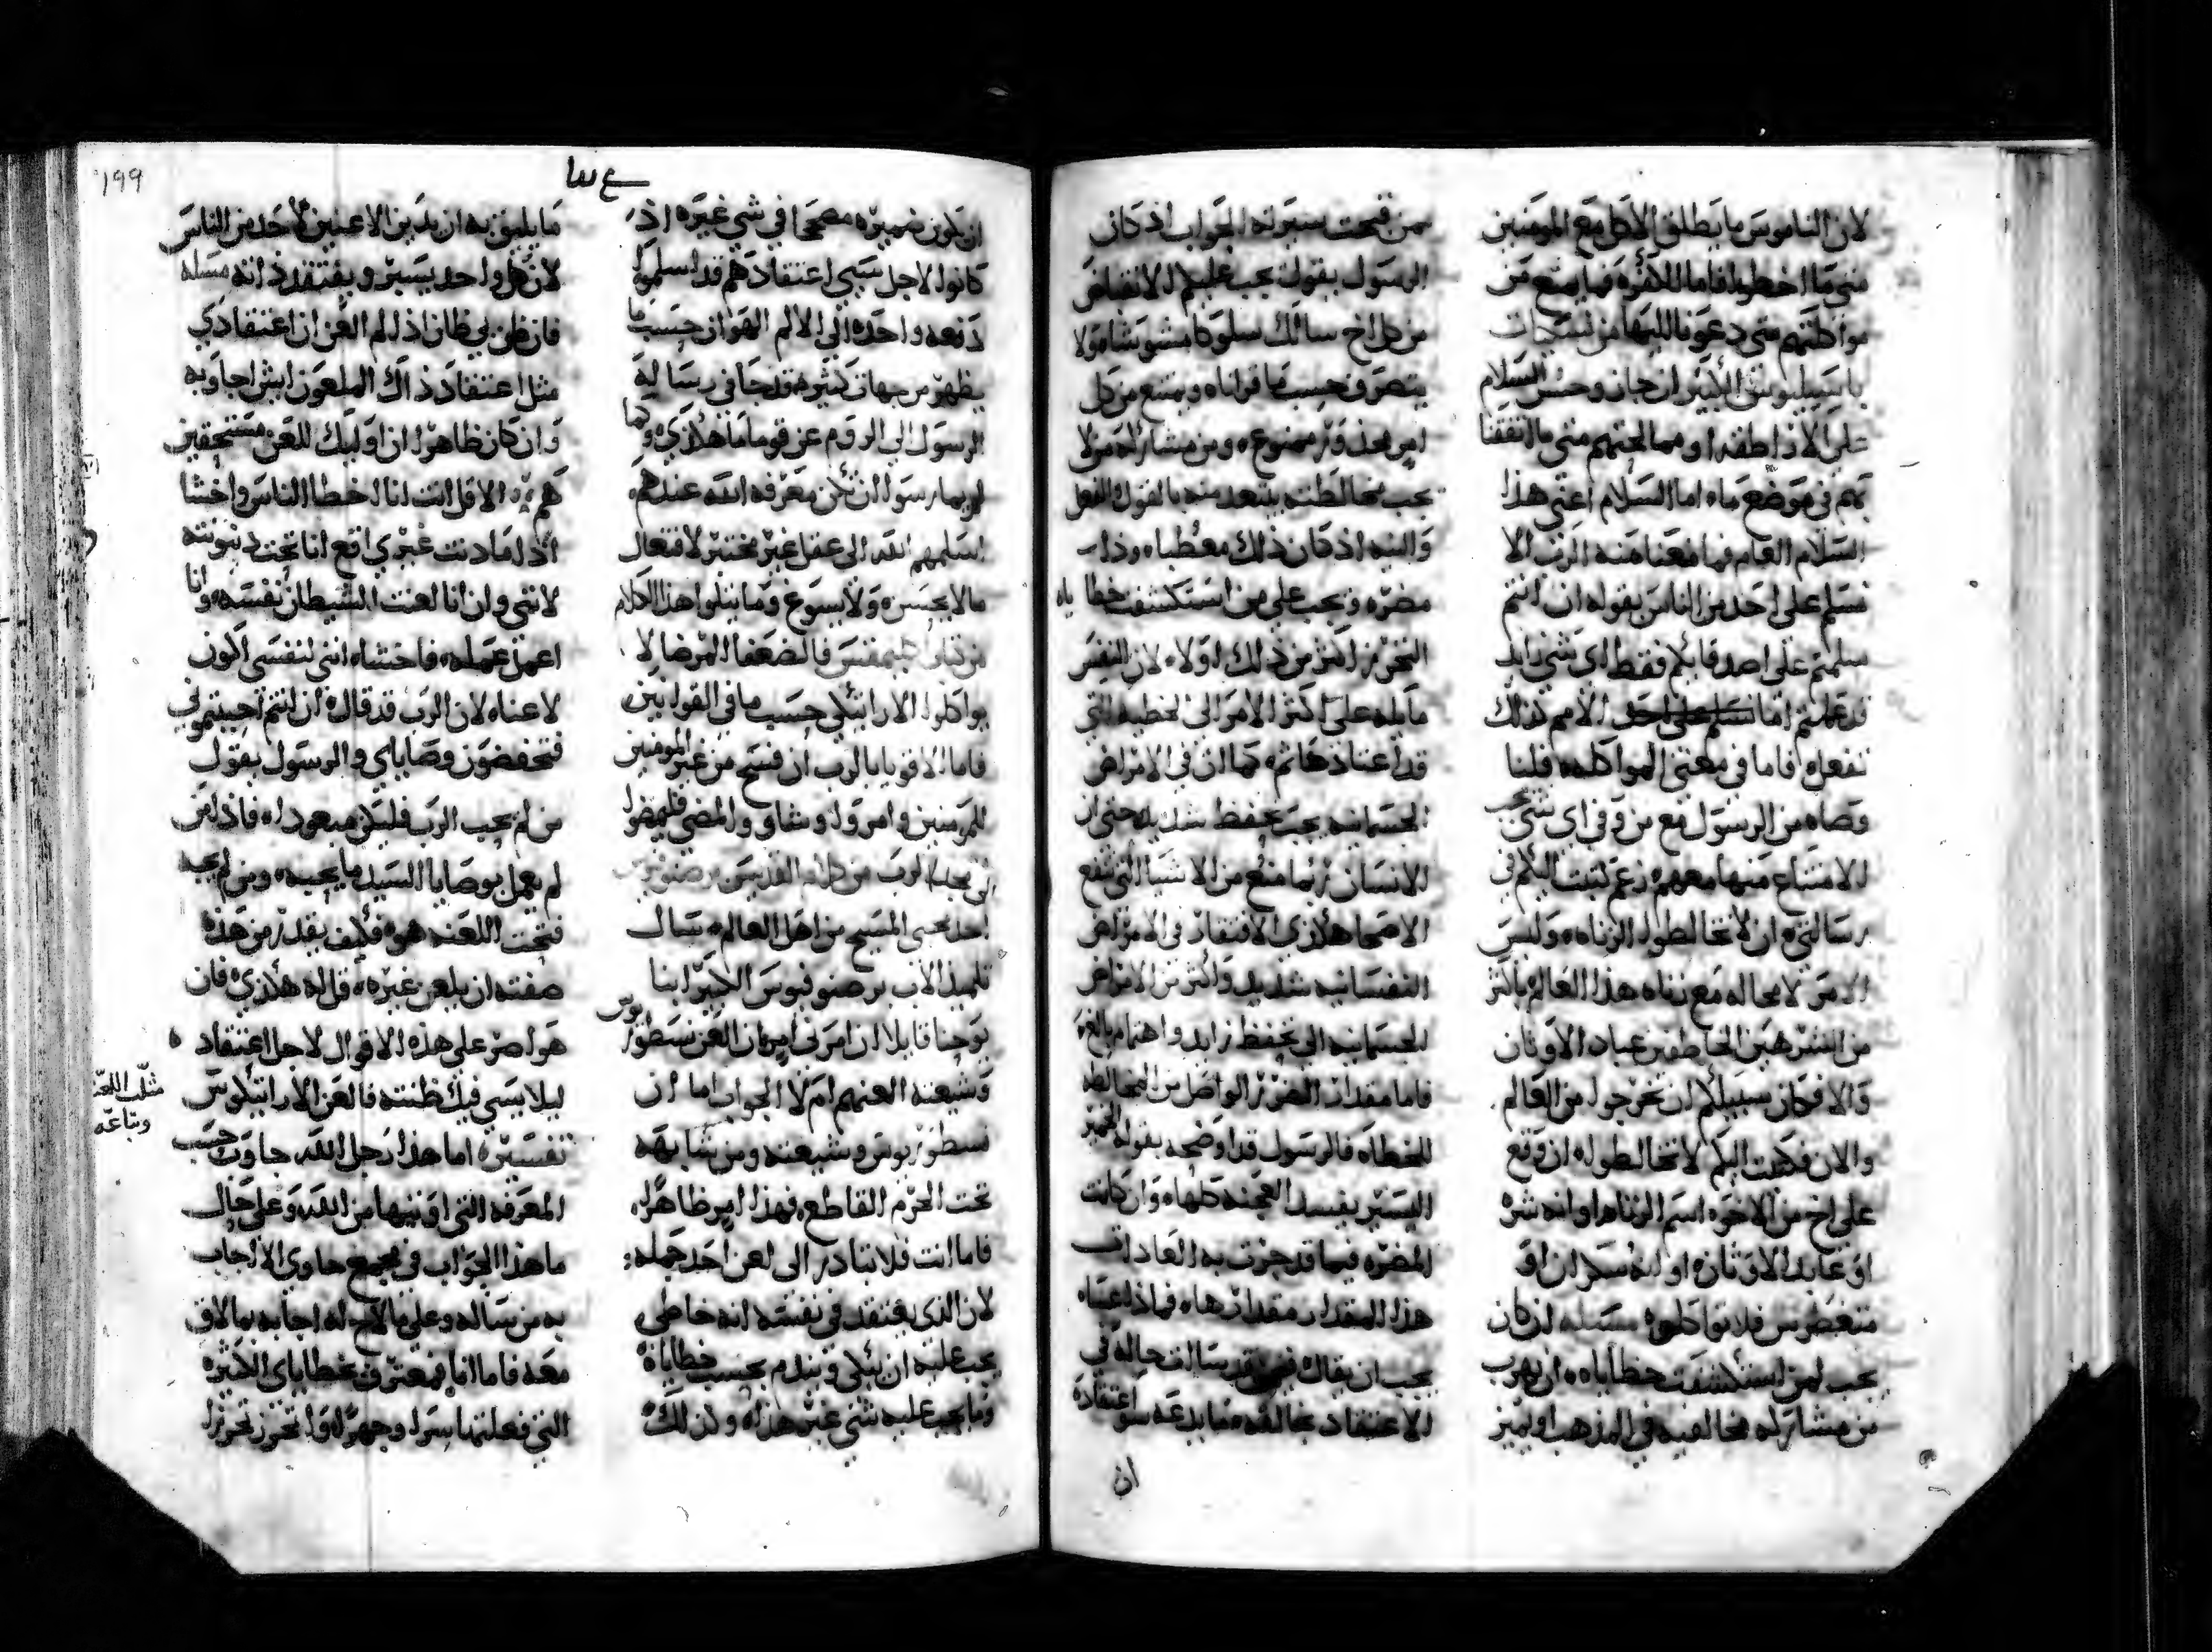 لان الناموس ما يطلق الاكل مع المومنين
متى ما اخطوا فاما الكفره فما يمنع من
مواكلتهم متى دعونا اليها من
باسيليوس الكبير ان جاز وحسن السلام
على الاراطقه او مصالحتهم متى ما اتفقنا
بهم في موضع ما، اما السلام اعني هذا
السلام العام فما منعنا منه الرب الا
نسلم على احد من الناس بقوله ان انتم
سلمتم على اصدقايكم فقط اي شي زايد
قد عملتم اما الامم كذلك
تفعل، فاما في معنى المواكله، فلنا
وصاه من الرسول مع من وفي اي شي يجب
الامتناع منها معهم، زعم كتبت اليكم في
رسالتي، ان لا تخالطوا الزناه، وليس
الامر لا محاله مع زناه هذا العالم بالكثر
من الشرهين الخاطفين عباد الاوثان
والا فكان سبيلكم ان تخرجوا من العالم
والان فكتبت اليكم لا تخالطوا، ان وقع
على اخ من الاخوه اسم الزناه، او انه شره
او عابد الاوثان، او انه سكران او
متغطرس فلا تواكلوه مسله ان كان
يجب لمن استكشفت خطاياه، ان يهرب
من مشاركه مخالفيه في المذهب او يميز
بمن قبحت سيرته الجواب اذ كان
الرسول يقول يجب عليكم الانقباض
من كل اخ سالك سلوكا مشوشا، ولا
يتصرف حسب ما قراناه ويمتنع من كل
امر محذور ممنوع، ومن مشاركه من لا
يجب مخالطته يبتعد منه بالقول والفعل
والنيه اذ كان ذلك معطبا، وذا
مضره ويجب على من استكشفت خطاياه
التحرز اكثر من ذلك اولا، لان النفس
مايله على اكثر الامر الى الخطيه التي
قد اعتادتها ثم، كما ان في الامراض
الجسمانيه يجب تحفظ شديد حتى ان
الانسان ربما منع من الاشيا التي تنفع
الاصحا هكذي الافتقاد في الامراض
النفسانيه شديد واكثر من الامراض
الجسمانيه الى تحفظ زايد واهتمام بالغ
فاما مقدار الضرر الواصل من المخالطه
للخطاه فالرسول قد اوضحه بقوله الخمير
اليسير يفسد العجنه كلها، وان كانت
المضره فيما قد جرت به العادات
هذا المقدار مقدارها، فماذا عساه
يجب ان يقال فيمن قد سالت حاله في
الاعتقاد بمخالفه ما يدعه سو اعتقاده
ان
ع سا
ان يكون ضميره مصححا في شي غيره اذ
كانوا لاجل سي اعتقادهم قد اسلموا
دفعه واحده الى الالم الهوان حسب ما
يظهر من جهات كثيره قد جا في رساله
الرسول الى الروم عن قوم ما هكذي وكما
لم يمارسوا ان تكن معرفه الله عندهم
اسلمهم الله الى عقل غير مختبر لافتعال
ما لا يحسن، ولا يسوغ وما يتلوا هذا الكلام
فالضعفا المرضا لا
يواكلوا الاراتيكي حسب ما في القوانين
فاما الاقويا بالرب ان فسح من غير المومنين
للمومنين وامروا، وشاوو المضي فليمضوا
الى مجد الرب من كلام القديس برصنوفيوس
احد محبي المسيح من اهل العالم، سال
تلميذ الاب برصنوفيوس الكبير ابنا
يوحنا قايلا ان امرني امر ان العن نسطوريوس
وشيعته العنهم ام لا الجواب اما ان
نسطوريوس وشيعته ومن شابهه
تحت الحرم القاطع، فهذا امر ظاهرا،
فاما انت فلا تبادر الى لعن احد جمله:
لان الذي يعتقد في نفسه انه خاطي
يجب عليه ان يبكي ويندم بحسب خطاياه
وما يجب عليه شي غير هذا، وكذلك
199
ما يليق به ان يدين الاعنين لاحد من الناس
لان كل واحد يسير ويفتقد ذاته مسله
فان ظن بي ظان اذا لم العن ان اعتقادي
مثل اعتقاد ذاك الملعون ايش اجاوبه
وان كان ظاهرا ان اوليك للعن مستحقين
هم الا قل انت انا اخطا الناس واخشا
اذا ما دنت غيري اقع انا تحت دينونته
لانني وان انا لعنت الشيطان نفسه، وانا
اعمل عمله، فاخشا، انني لنفسي اكون
لاعنا، لان الرب قد قال، ان انتم احببتموني
فتحفضون وصاياي والرسول يقول
من لم يحب الرب فليكن مبعودا، فاذا من
لم يعمل بوصايا السيد ما يحبه، ومن لم يحبه
فتحت اللعنه هو، فكيف يقدر من هذه
صفته ان يلعن غيره، قل له هكذي، فان
هو اصر على هذه الاقوال لاجل اعتقاد
ليلا يسي فيك ظنته فالعن الاراتيكوس
تفسيره اما هذا رجل الله جاوب حسب
المعرفه التي اوتيها من الله، وعلى حال
ما هذا الجواب في مجمع حاوي الاجاب
به من ساله، وعلى ما لاح له اجابه بما لاق
معه فاما انا فمعترف بخطاياي الكثيره
التي فعلتها سرا وجهرا، وا تحرز تحرزا
مثلب اللعن
وتباعه